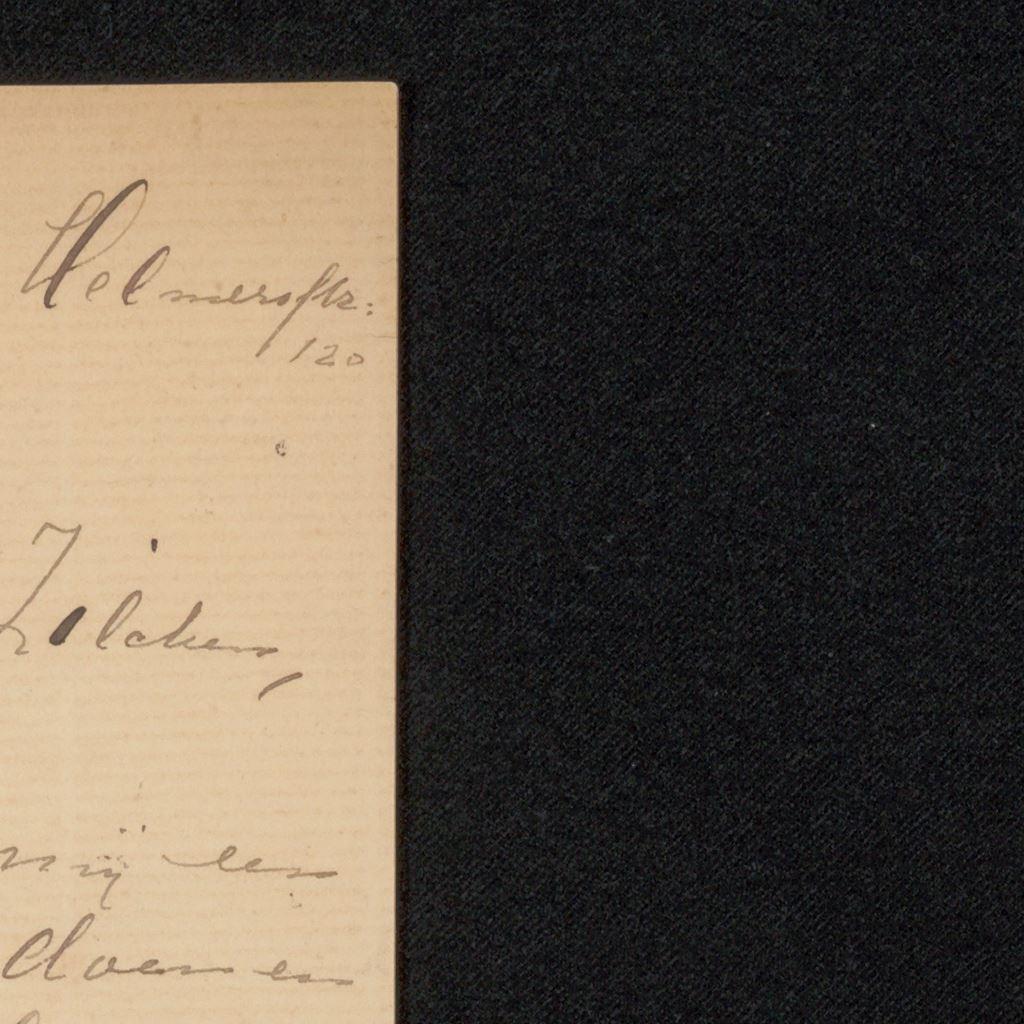 Helmersstr:
120
Zilcken,
mij een
doen en